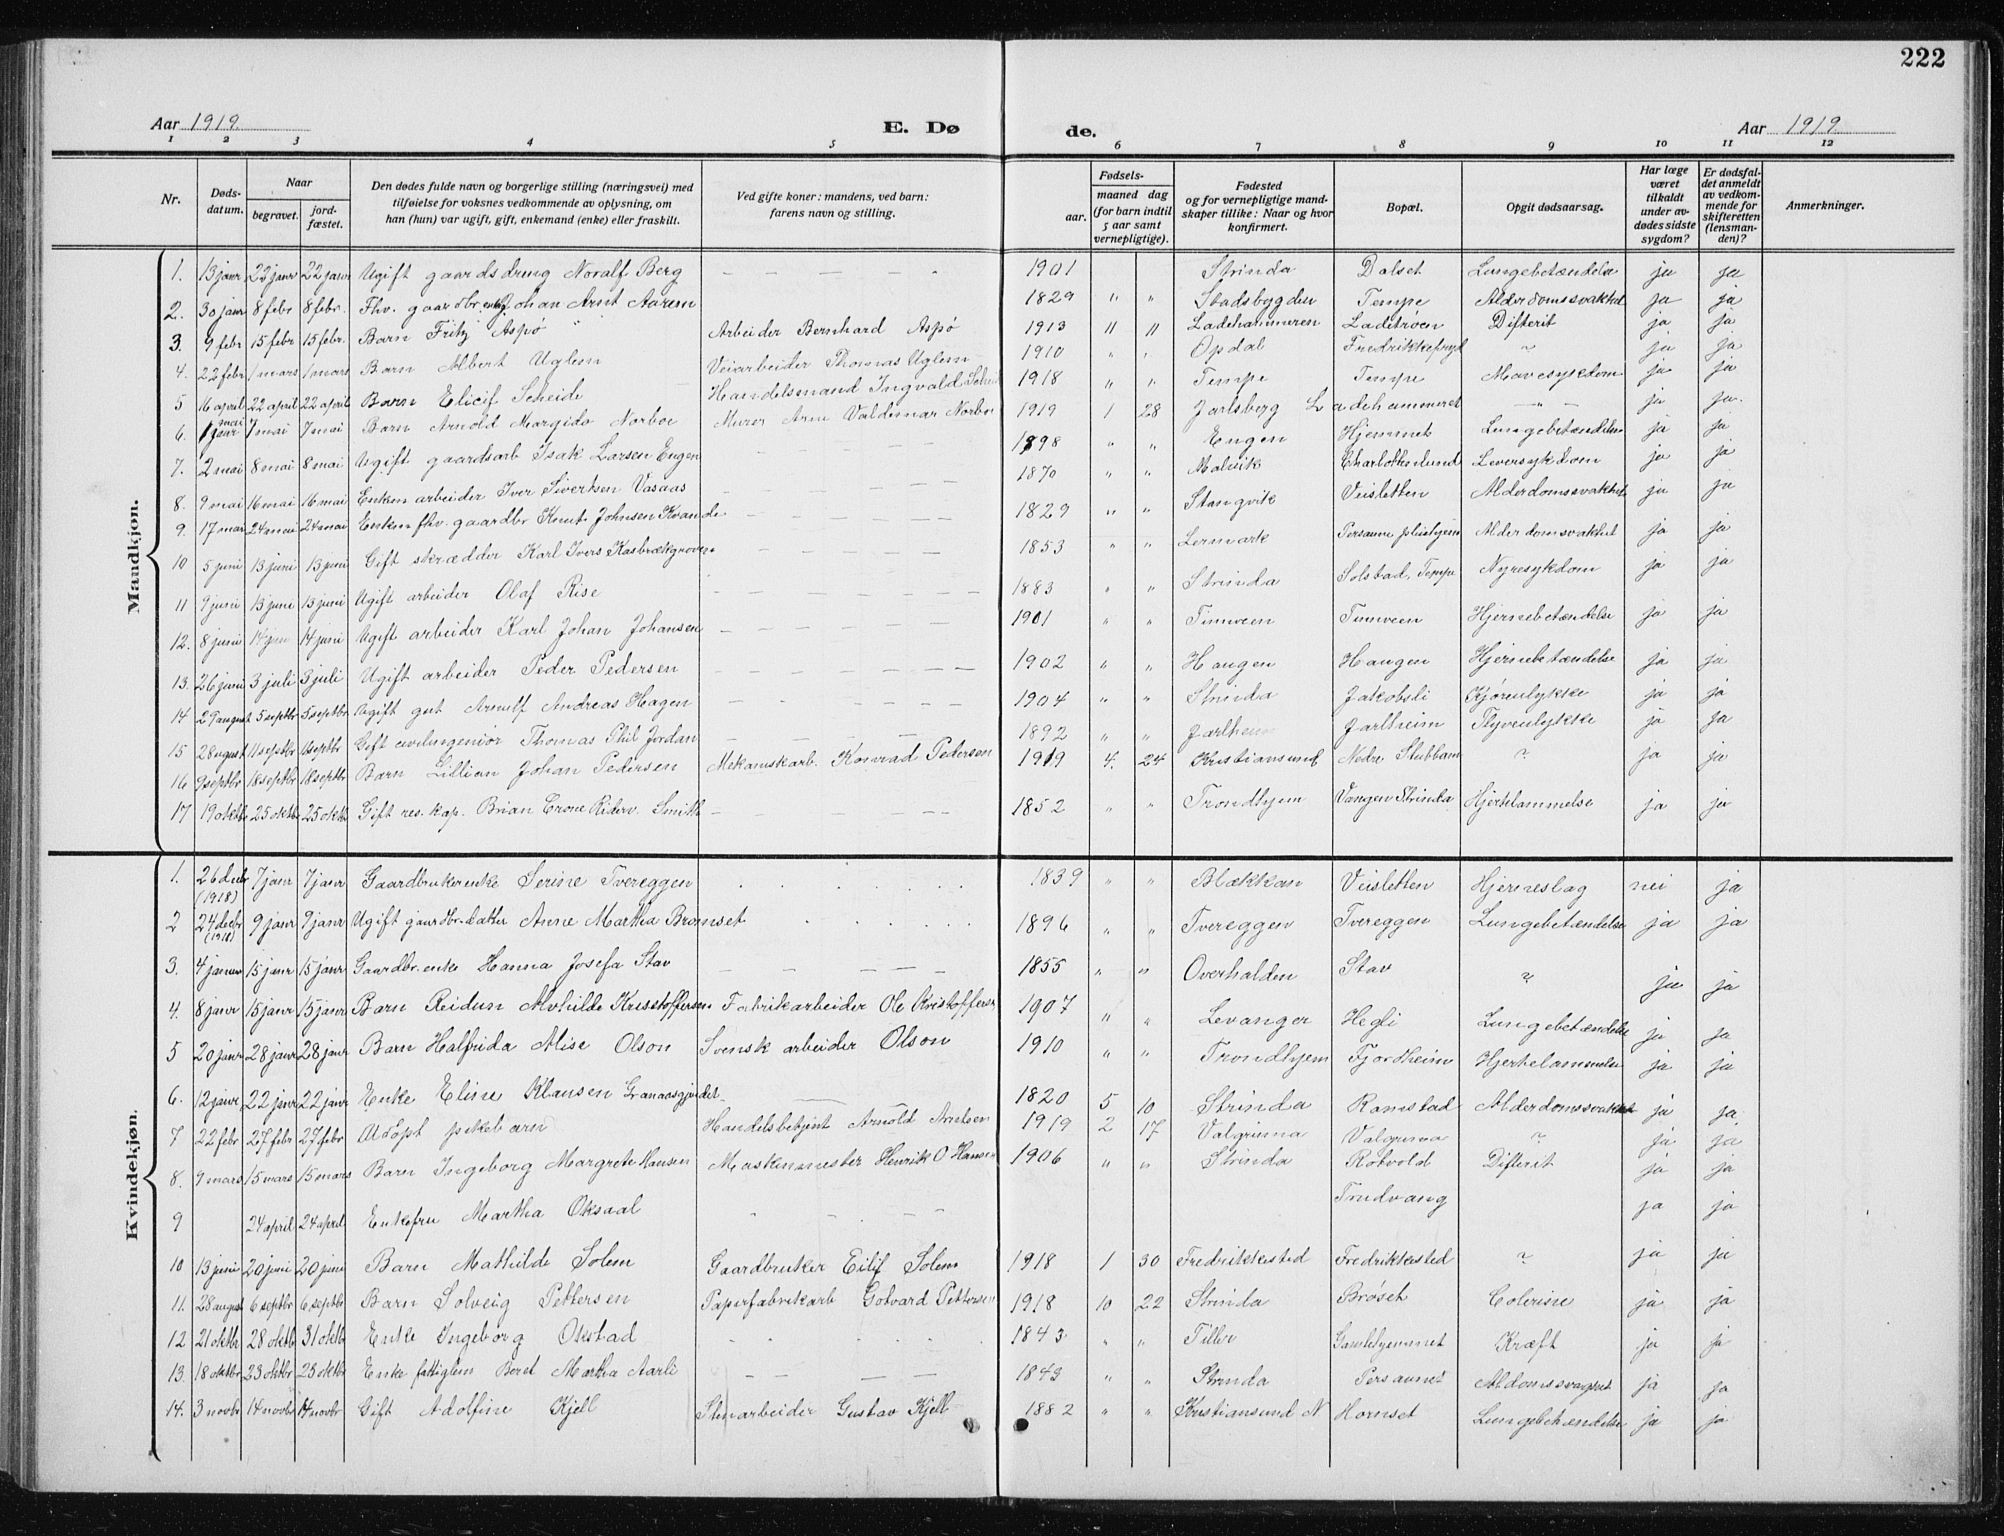 222
Aar 1919. E. Dø de. Aar 1919
1 2 3 4 5 6 7 8 9 10 11 12
Nr. Døds-datum. Naar begravet. jord-fæstet. Den dødes fulde navn og borgerlige stilling (næringsvei) med tilføielse for voksnes vedkommende av oplysning, om han (hun) var ugift, gift, enkemand (enke) eller fraskilt. Ved gifte koner: mandens, ved barn: farens navn og stilling. Fødsels- aar. maaned dag (for barn indtil 5 aar samt vernepligtige). Fødested og for vernepligtige mandskaper tillike: Naar og hvor konfirmert. Bopæl. Opgit dødsaarsag. Har læge været tilkaldt under avdødes sidste sygdom? Er dødsfaldet anmeldt av vedkommende for skifteretten (lensmanden)? Anmerkninger.
Mandkjøn.
1. 13 janr 22 janr 22 janr Ugift gaardsdreng Noralf Berg — — — 1901 Strinda Dalset Lungebetændelse ja ja
2. 30 janr 8 febr 8 febr. Fhv. gaardbr. enkem Johan Arnt Aarem 1829 " " Stadsbygden Tempe Alderdomssvakhet ja ja
3. 9 febr 15 febr 15 febr. Barn Fritz Aspø Arbeider Bernhard Aspø 1913 " " Ladehammeren Ladetrøen Difterit ja ja
4. 22 febr 1 mars 1 mars Barn Albert Uglem Veiarbeider Thomas Uglem 1910 " " Opdal " ja ja
5 16 april 22 april 22 april Barn Eilif Scheide Handelsmand Ingvald 1918 " " Tempe Tempe Mavesykdom ja ja
6. 1 mai 7 mai 7 mai Barn Arnold Margido Norboe Murer Arne Valdemar Norboe 1919 1 28 Jarlsberg Ladehammeret — " — ja ja
7. 2 mai 8 mai 8 mai Ugift gaardsarb Isak Larsen Engen — — — 1898 " " Engen Hjemmet Lungebetændelse ja ja
8. 9 mai 16 mai 16 mai Enkem arbeider Iver Sivertsen Vasaas — — — 1870 " " Malvik Charlottenlund Leversykdom ja ja
9. 17 mai 24 mai 24 mai Enkem fhv. gaardbr Knut Johnsen Kvande — — — 1829 " " Stangvik Veisletten Alderdomssvakhet ja ja
10 5 juni 13 juni 13 juni Gift skrædder Karl Ivers Kasbrækgroven — — — 1853 " " Lermark Persaune pleiehjem Alderdomsvakhet ja ja
11 9 juni 13 juni 13 juni Ugift arbeider Olaf Rise — — — 1883 " " Strinda Solstad, Tempe Nyresykdom ja ja
12. 8 juni 14 juni 14 juni Ugift arbeider Karl Johan Johansen — — — 1901 " " Timveen Timveen Hjernebetændelse ja ja
13. 26 juni 3 juli 3 juli Ugift arbeider Peder Pedersen — — — 1902 " " Haugen Haugen Hjernebetændelse ja ja
14 29 august 5 septbr 5 septbr Ugift gut Arnulf Andreas Hagen — — — 1904 " " Strinda Jakobsli Kjøreulykke ja ja
15 28 august 11 septbr 11 septbr Gift civilingeniør Thomas Phil Jordan — — — 1892 " " Jarlheim Jarlheim Flyveulykke ja ja
16 9 septbr 18 septbr 18 septbr Barn Lillian Johan Pedersen Mekaniskarb. Konrad Pedersen 1919 4. 24 Kristiansund Nedre Stubban ? ja ja
17 19 oktbr 25 oktbr 25 oktb Gift res. kap. Brian Crone Riterv. Smith — — — 1852 " " Trondhjem Vangen Strinda Hjertelammelse ja ja
Kvindekjøn.
1. 26 decbr (1918) 7 janr 7 janr Gaardbrukerenke Serine Tvereggen 1839 " " Blækkan Veisletten Hjerneslag nei ja
2 24 decbr (1918) 9 janr 9 janr Ugift gaardbr. datter Anne Martha Bromset 1896 " " Tvereggen Tvereggen Lungebetændelse ja ja
3. 4 januar 15 janr 15 janr Gaardbr. enke Hanna Josefa Stav — — — 1855 " " Overhalden Stav ? ja ja
4. 8 janr 15 janr 15 janr Barn Reidun Mathilde Kristoffersen Fabrikarbeider Ole Kristoffersen 1907 " " Levanger Hegli Lungebetændelse ja ja
5 20 janr 28 janr 28 janr Barn Halfrida Alise Olson Svensk arbeider Olson 1910 " " Trondhjem Fjordheim Hjertelammelse ja ja
6. 12 janr 22 janr 22 janr Enke Eline Klausen Granaasgjerdet — 1820 5 10 Strinda Ranstad Alderdomssvakhet ja ja
7 22 febr 27 febr 27 febr Udøpt pikebarn Handelsbetjent Arnold Arntsen 1919 2 17 Valgrinna Valgrinna ? ja ja
8. 9 mars 15 mars 15 mars Barn Ingeborg Margrete Hansen Maskinmester Henrik O Hansen 1906 " " Strinda Rotvold Difterit ja ja
9 24 april 24 april Enkefru Martha Oksaal Trudvang ja ja
10 13 juni 20 juni 20 juni Barn Mathilde Solem Gaardbruker Eilif Solem 1918 1 30 Fredriksted Fredriksted ? ja ja
11. 28 august 6 septbr 6 septbr Barn Solveig Pettersen Papirfabrikarb Gotvard Pettersen 1918 10 22 Strinda Brøset Colerine ja ja
12 21 oktbr 28 oktbr 31 oktb Enke Ingeborg Okstad 1843 " " Tiller Gamlehjemmet Kræft ja ja
13. 18 oktbr 23 oktbr 23 oktbr Enke fattiglem Beret Martha Aarli — — — 1843 " " Strinda Persaunet ja ja
14. 3 novbr 14 novbr 14 novbr Gift Adolfine Kjell Stenarbeider Gustav Kjell 1882 " " Kristiansund N Hornset Lungebetændelse ja ja